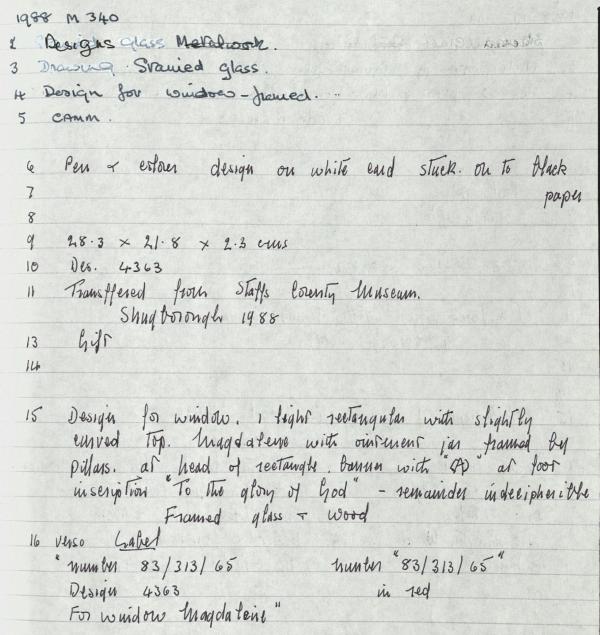 1988 M 340
2 Designs glass Metalwork.
3 Drawing Stanied glass.
4 Design for window-framed.
5 CAMM.
6 Pen & colour design on white card stuck on to black
7 paper
8
9 28.3 × 21.8 × 2.3 cms
10 Des. 4363
11 Transffered from Staffs County Museum.
Shugborough 1988
13 Gift
14
15 Design for window. 1 light rectangular with slightly
curved top. Magdalene with ointment jar framed by
pillars. at head of rectangle. banner with "" at foot
inscription "To the glory of God" - remainder indecipherible
Framed glass & wood
16 verso Label
"number 83/313/65 number "83/313/65"
Design 4363 in red
For window Magdalene"